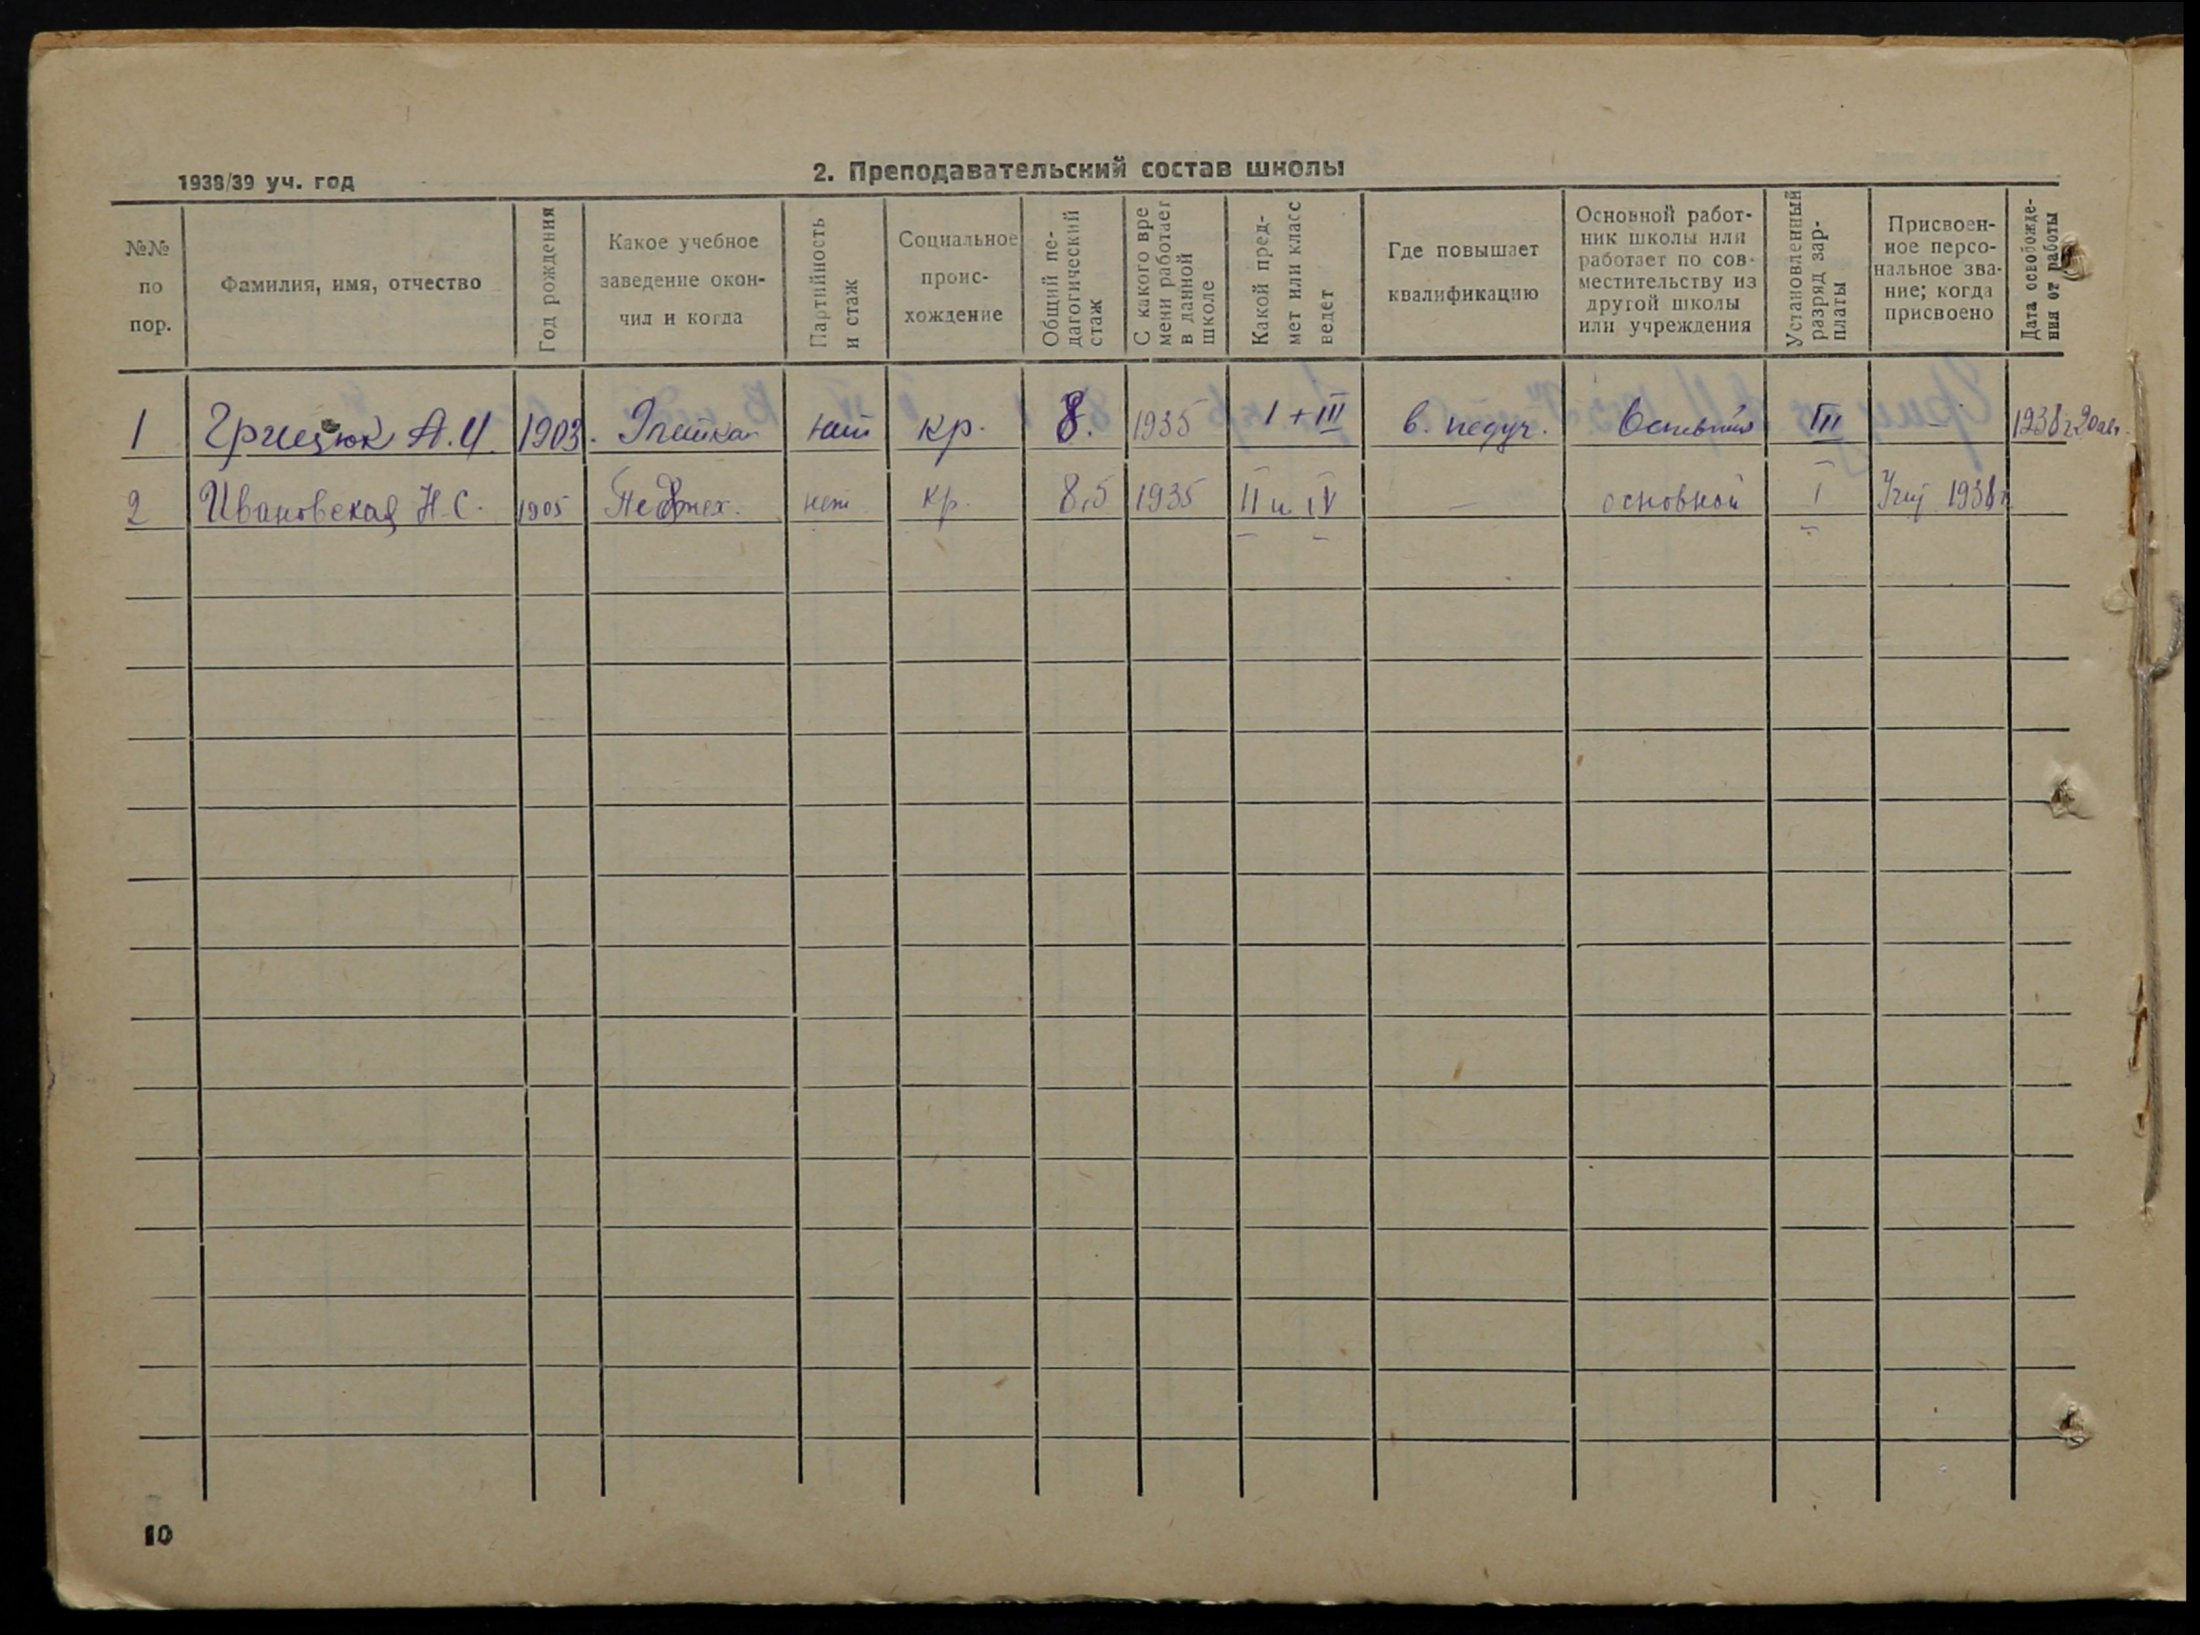 1938/39 уч. год
2. Преподавательский состав школы
№№ по пор.
Фамилия, имя, отчество
Год рождения
Какое учебное заведение окончил и когда
Партийность и стаж
Социальное происхождение
Общий педагогический стаж
С какого времени работает в данной школе
Какой предмет или класс ведет
Где повышает квалификацию
Основной работник школы или работает по совместительству из другой школы или учреждения
Установленный разряд зарплаты
Присвоенное персональное звание; когда присвоено
Дата освобождения от работы
1 Грицюк А.И. 1903. нет кр. 8. 1935 I + III в. педуч. Основной III — 1938 г 20 авг.
2 Ивановская Н.С. 1905 нет кр. 8,5 1935 II и IV — основной I 1938 г
10